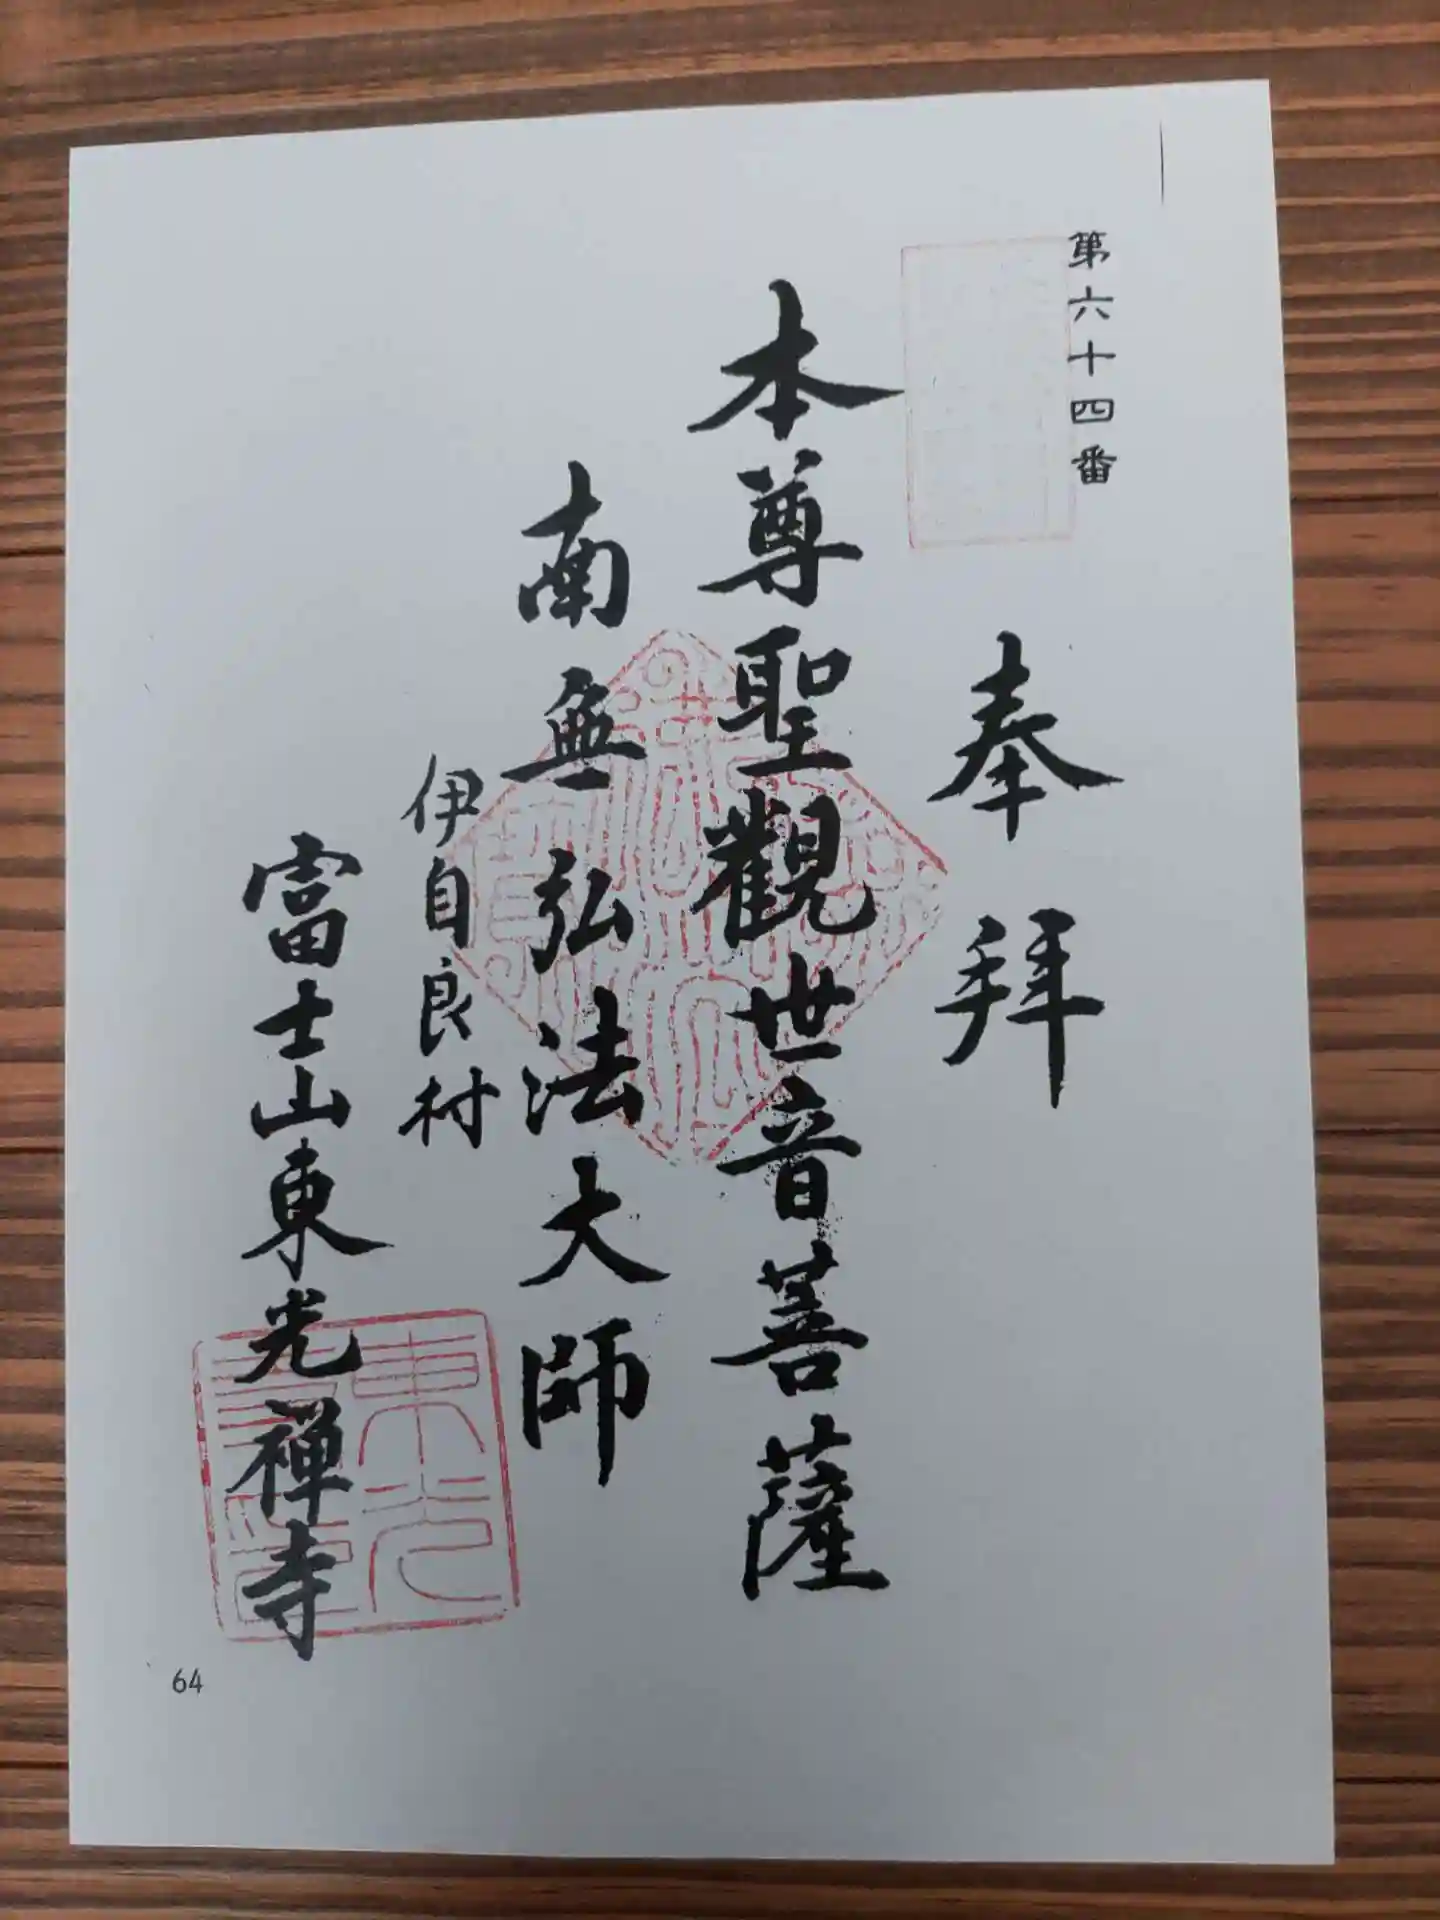 第六十四番
奉拜
本尊聖觀世音菩薩
南無弘法大師
伊自良村
富士山東光禅寺
東光
64